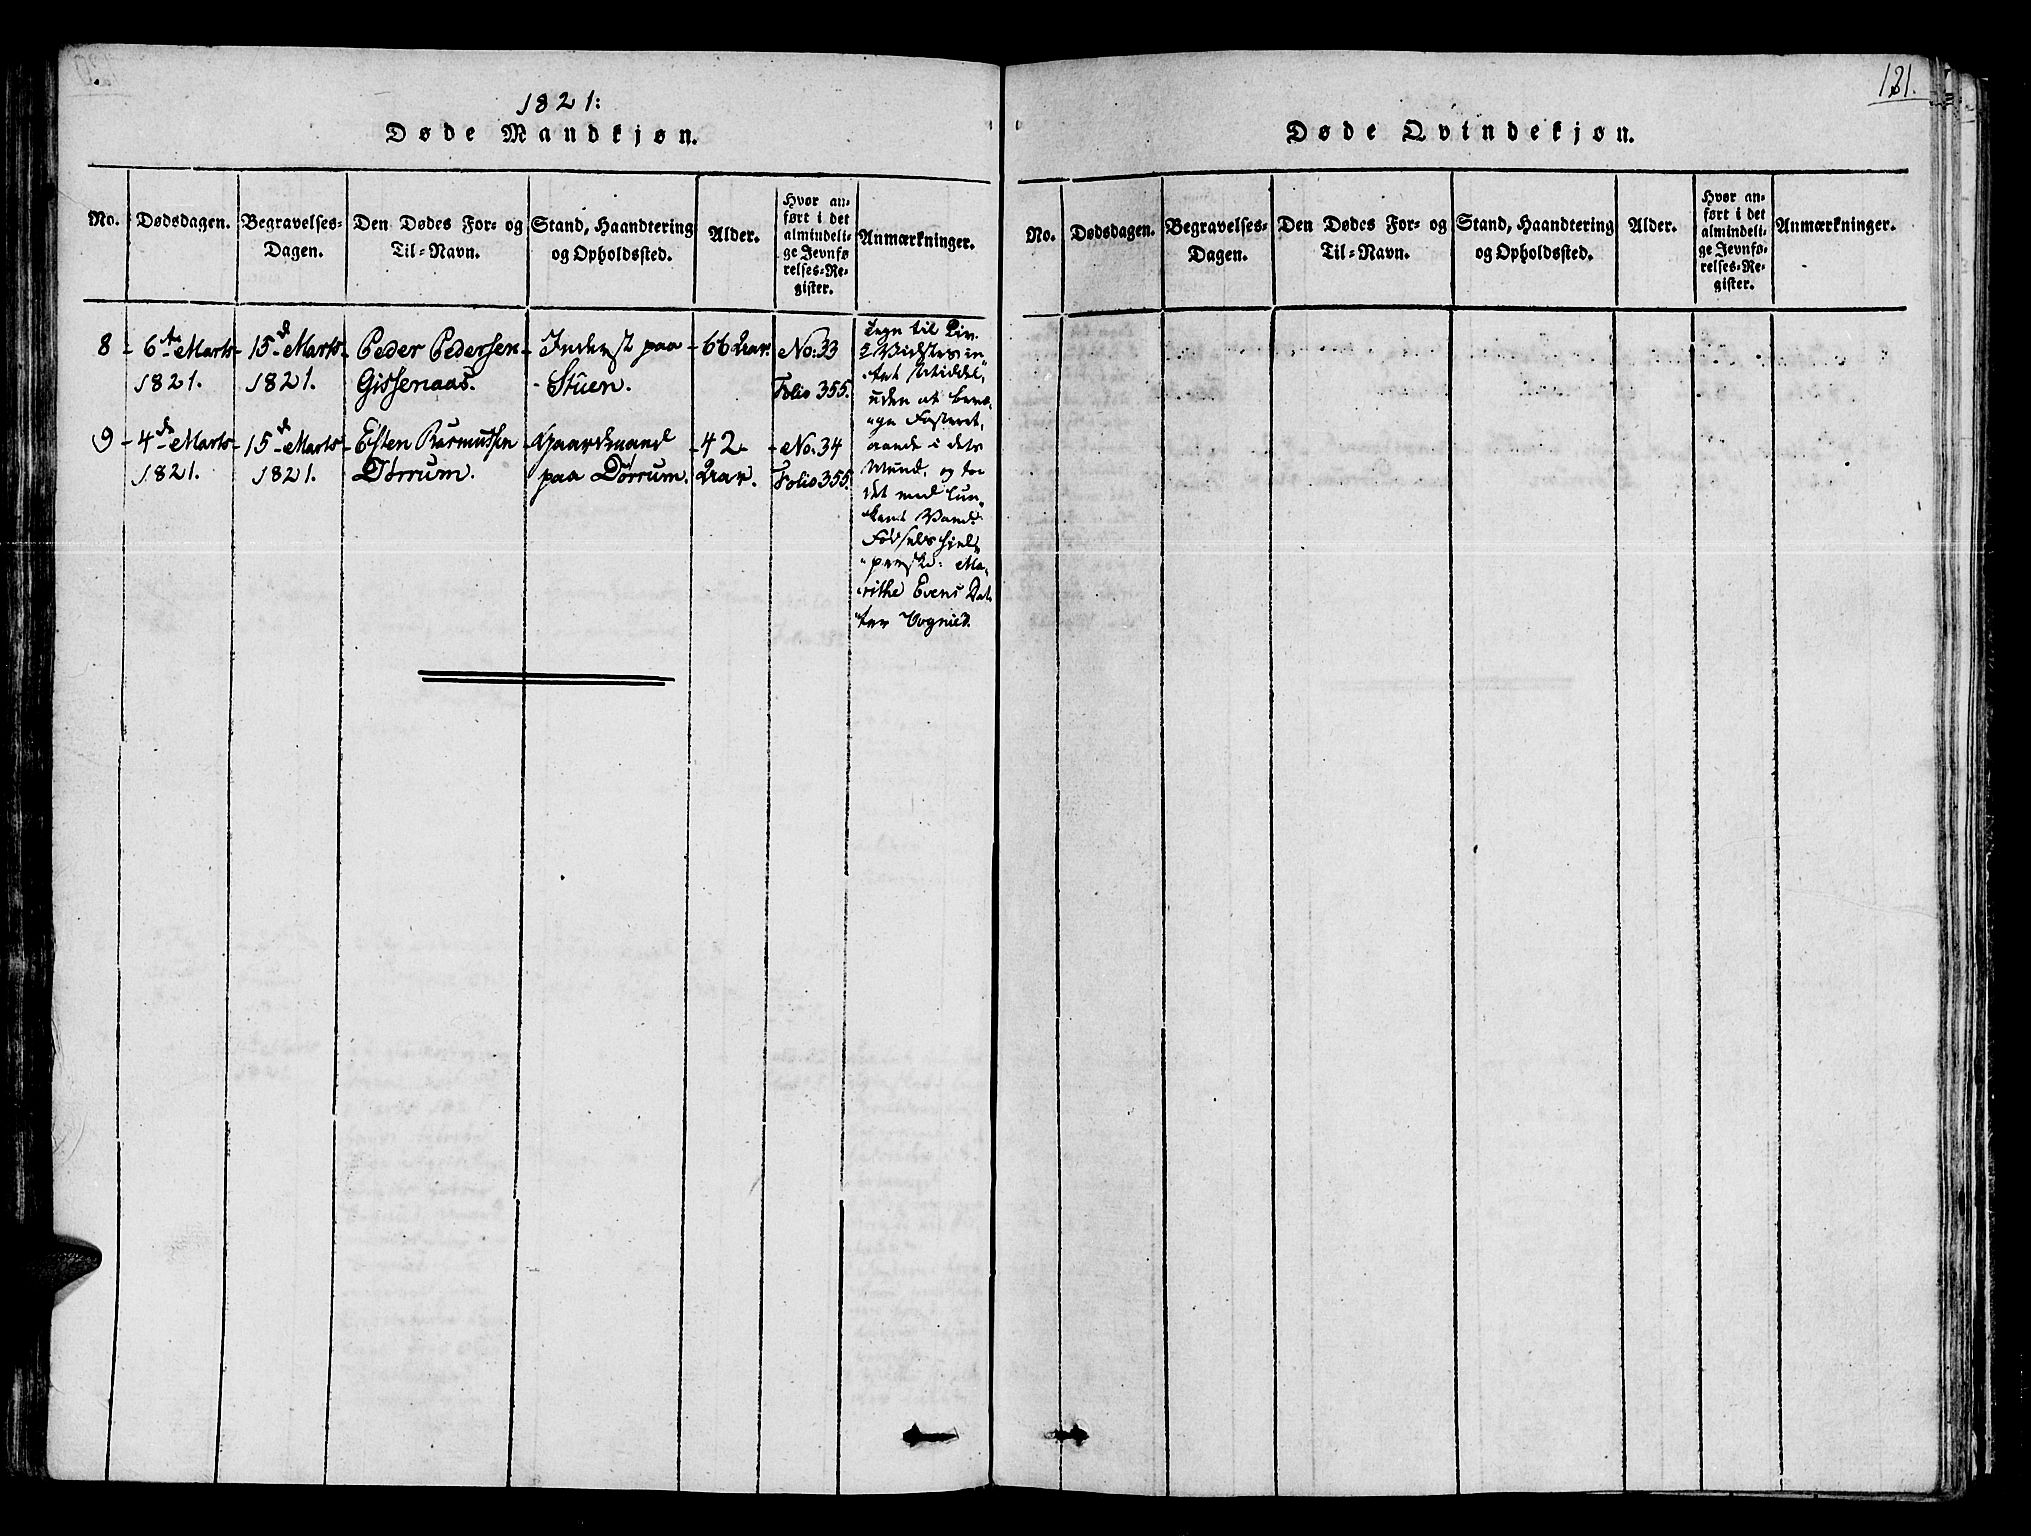 1821:
Døde Mandkjøn.
No.
Dødsdagen.
Begravelses-
Dagen.
Den Dødes For- og
Til-Navn.
Stand, Haandtering
og Opholdssted.
Alder.
Hvor an-
ført i det
almindeli-
ge Jevnfø-
relses-Re-
gister.
Anmærkninger.
8
6te Marts
1821.
15de Marts
1821.
Peder Pedersen
Gissenaas.
Inderst paa
Stuen.
66 Aar.
No: 33
Folio 355.
9
4de Marts
1821.
15de Marts
1821.
Esten Rasmussen
Dørrum.
Gaardmand
paa Dørrum.
42
Aar.
No: 34
Folio 355.
Tegn til Liv
Vidstes in
tet Middel,
uden at bevæ
ge Fosteret,
aande i dets
Mund, og toe
det med lun
kent Vand.
Fødselshjel
perske: Ma
rithe Evens Dat
ter Vognild.
131.
Døde Qvindekjøn.
No.
Dødsdagen.
Begravelses-
Dagen.
Den Dødes For- og
Til-Navn.
Stand, Haandtering
og Opholdssted.
Alder.
Hvor an-
ført i det
almindeli-
ge Jevnfø-
relses-Re-
gister.
Anmærkninger.